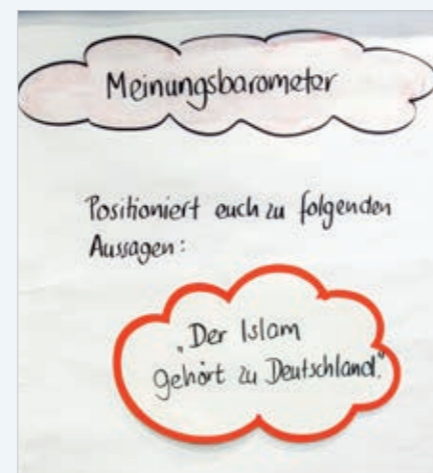 Meinungsbarometer
Positioniert euch zu folgenden
Aussagen:
„Der Islam
gehört zu Deutschland."